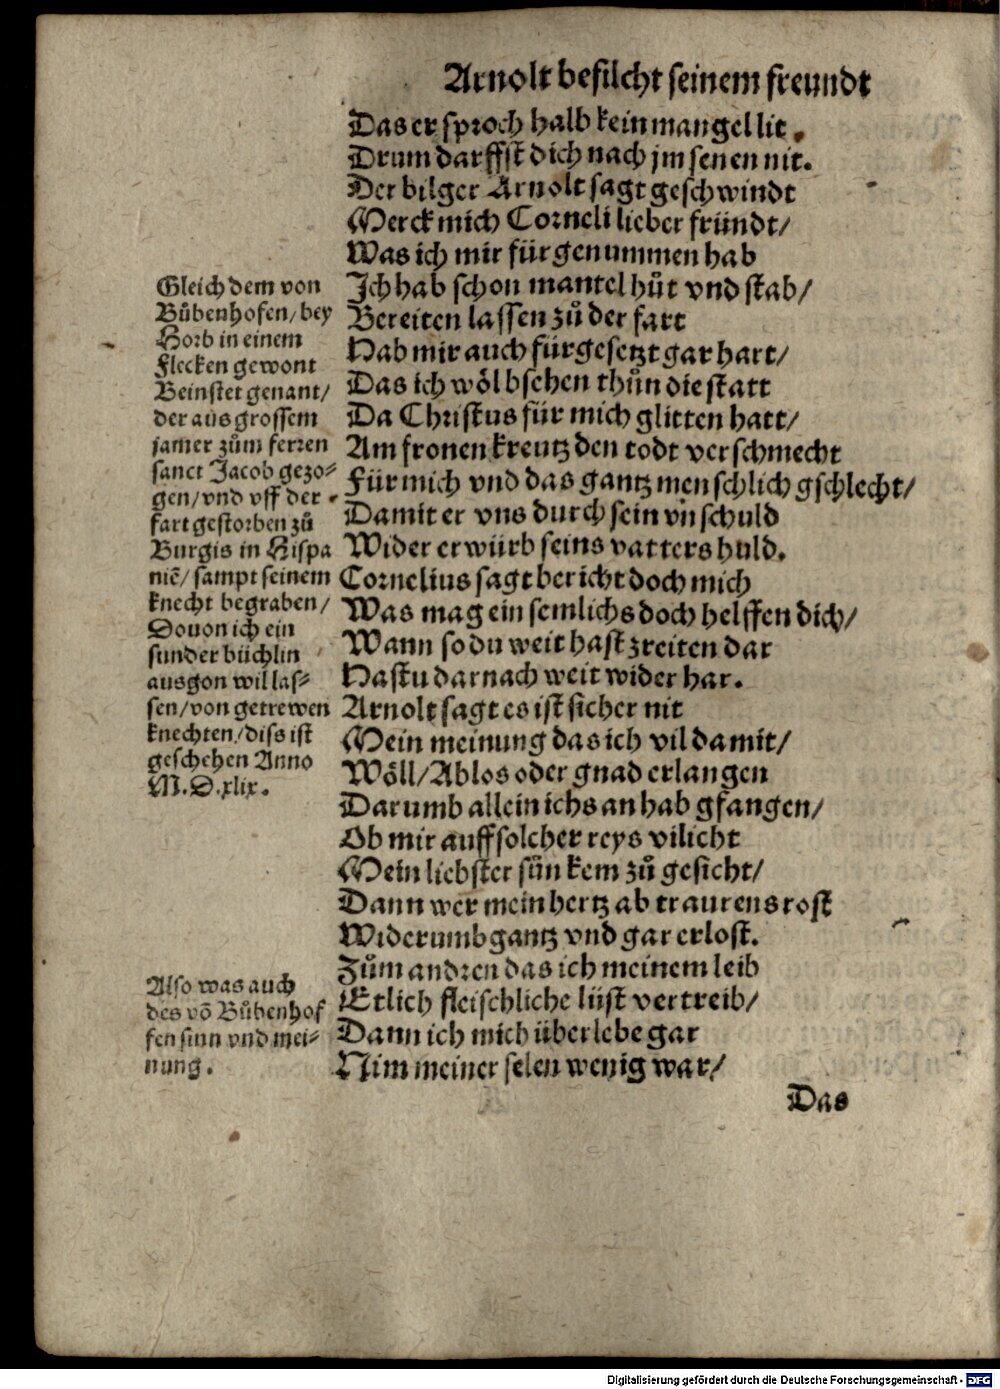 Arnolt befilcht seinem freundt
Das er sproch halb kein mangel lit.
Drum darffst dich nach jm senen nit.
Der bilger Arnolt sagt geschwindt
Merck mich Corneli lieber fründt/
Was ich mir für genummen hab
Ich hab schon mantel hůt vnd stab/
Bereiten lassen zů der fart
Hab mir auch fürgesetzt gar hart/
Das ich wöl bsehen thůn die statt
Da Christus für mich glitten hatt/
Am fronen kreutz den todt verschmecht
Für mich vnd das gantz menschlich gschlecht/
Damit er vns durch sein vnschuld
Wider erwürb seins vatters huld.
Cornelius sagt bericht doch mich
Was mag ein semlichs doch helffen dich/
Wann so du weit hast zreiten dar
Hastu darnach weit wider har.
Arnolt sagt es ist sicher nit
Mein meinung das ich vil damit/
Wöll/Ablos oder gnad erlangen
Darumb allein ichs an hab gfangen/
Ob mir auff solcher reys vilicht
Mein liebster sůn kem zů gesicht/
Dann wer mein hertz ab traurens rost
Widerumb gantz vnd gar erlost.
Zům andren das ich meinem leib
Etlich fleischliche lüst vertreib/
Dann ich mich überlebe gar
Nim meiner selen wenig war/
Das
Gleich dem von
Bůbenhofen/bey
Horb in einem
flecken gewont
Beinstet genant/
der aus grossem
jamer zům ferren
sanct Jacob gezo-
gen/vnd vff der
fart gestorben zů
Burgis in Hispa
niẽ/sampt seinem
knecht begraben/
Douon ich ein
sunder büchlin
ausgon wil las-
sen/von getrewen
knechten/diss ist
geschehen Anno
M.D.xlix.
Also was auch
des võ Bůbenhof
fen sinn vnd mei-
nung.
Digitalisierung gefördert durch die Deutsche Forschungsgemeinschaft - DFG